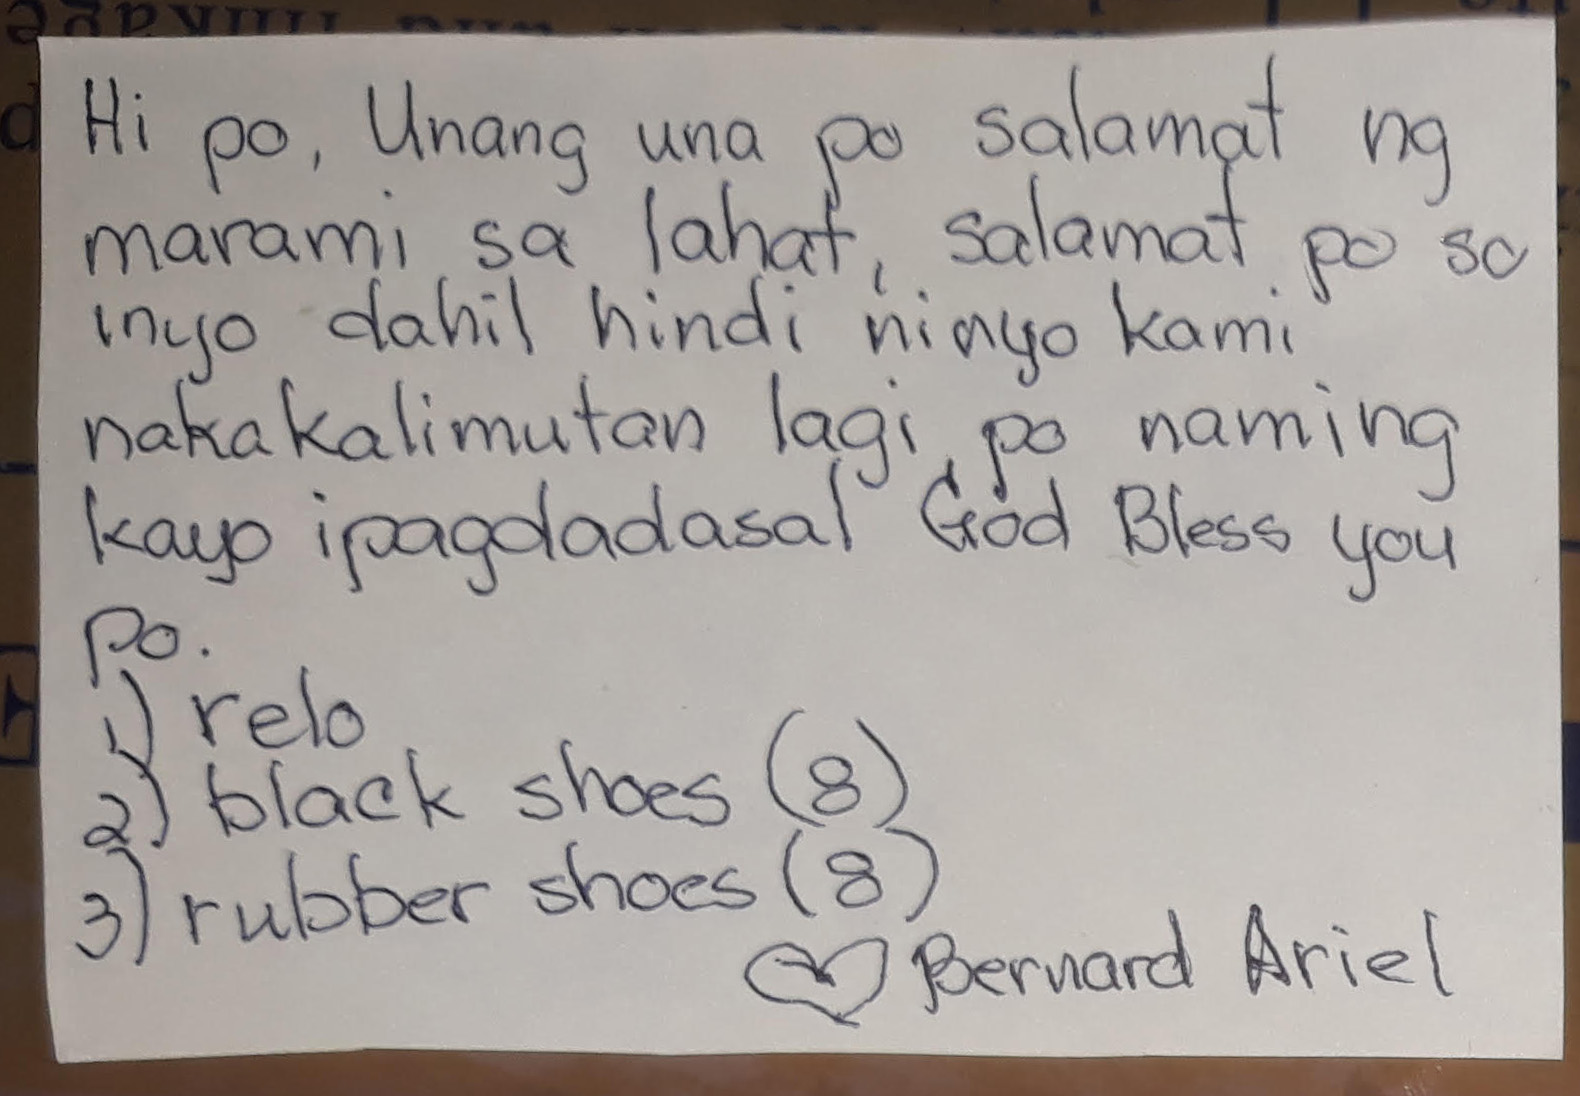 Hi po, Unang una po salamat ng
marami sa lahat, salamat po sa
inyo dahil hindi ninyo kami
nakakalimutan lagi po naming
kayo ipagdadasal God Bless you
po.
1) relo
2) black shoes (8)
3) rubber shoes (8)
♡ Bernard Ariel